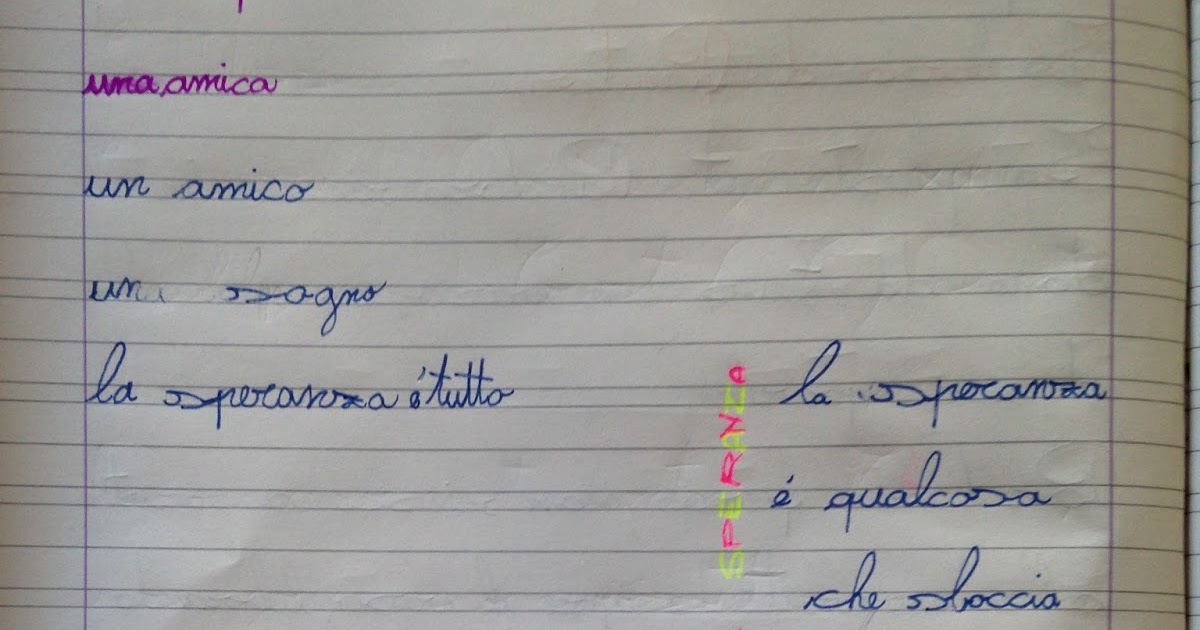 una amica
un amico
un sogno
la speranza é tutto
SPERANZA
la speranza
é qualcosa
che sboccia